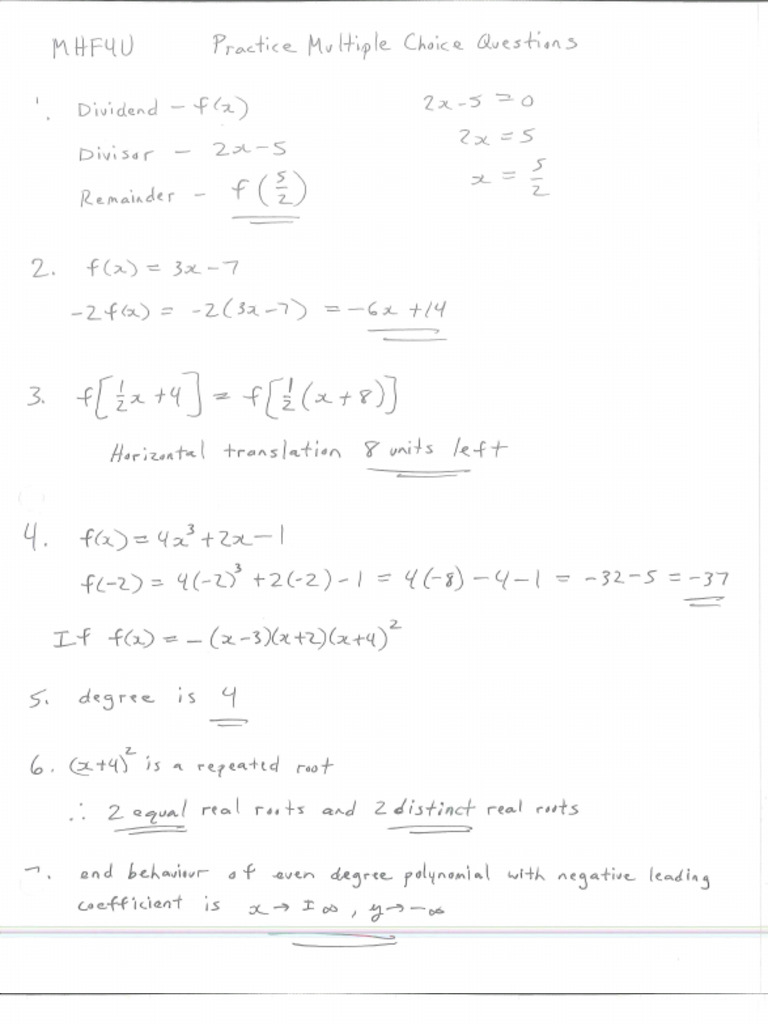 MHF4U Practice Multiple Choice Questions
1. Dividend - f(x) 2x-5 = 0
Divisor - 2x-5 2x = 5
Remainder - f(5/2) x = 5/2
2. f(x) = 3x-7
-2f(x) = -2(3x-7) = -6x +14
3. f[1/2x +4] = f[1/2(x+8)]
Horizontal translation 8 units left
4. f(x) = 4x³+2x-1
f(-2) = 4(-2)³ +2(-2)-1 = 4(-8)-4-1 = -32-5 = -37
If f(x) = -(x-3)(x+2)(x+4)²
5. degree is 4
6. (x+4)² is a repeated root
∴ 2 equal real roots and 2 distinct real roots
7. end behaviour of even degree polynomial with negative leading
coefficient is x→±∞, y→-∞